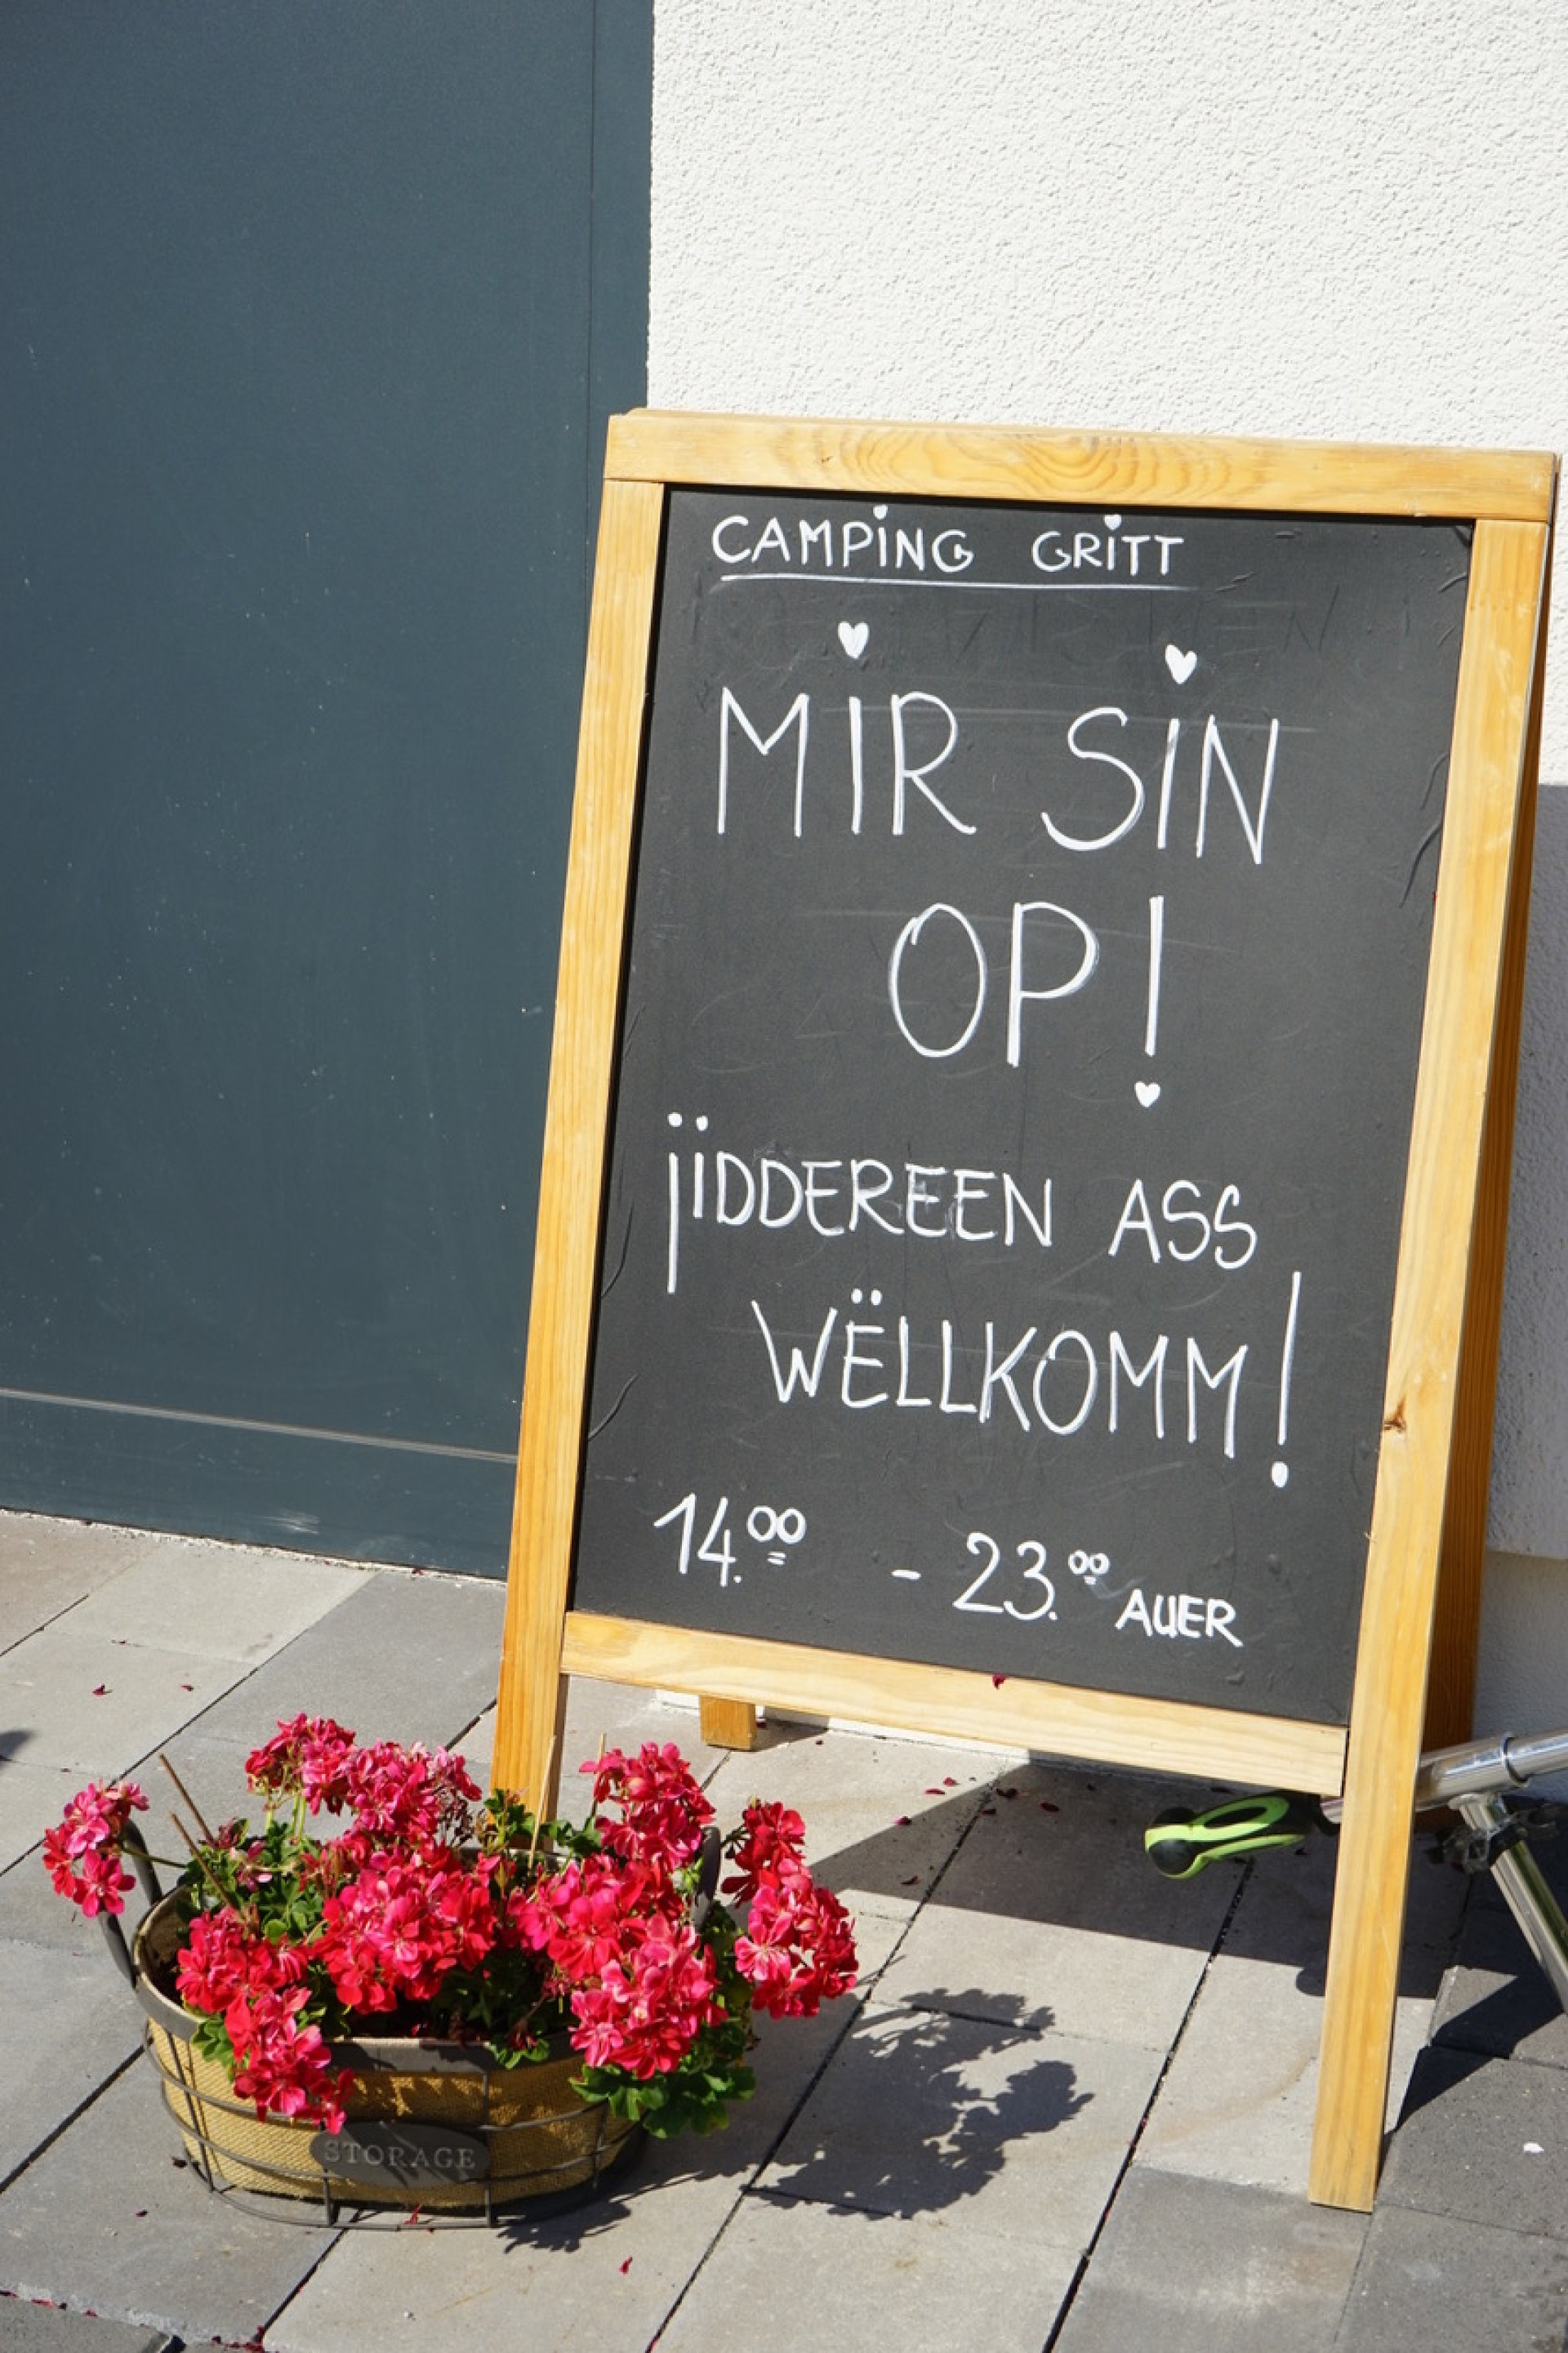 CAMPING GRITT
MIR SIN
OP!
JIDDEREEN ASS
WËLLKOMM!
14.00 - 23.00 AUER
STORAGE